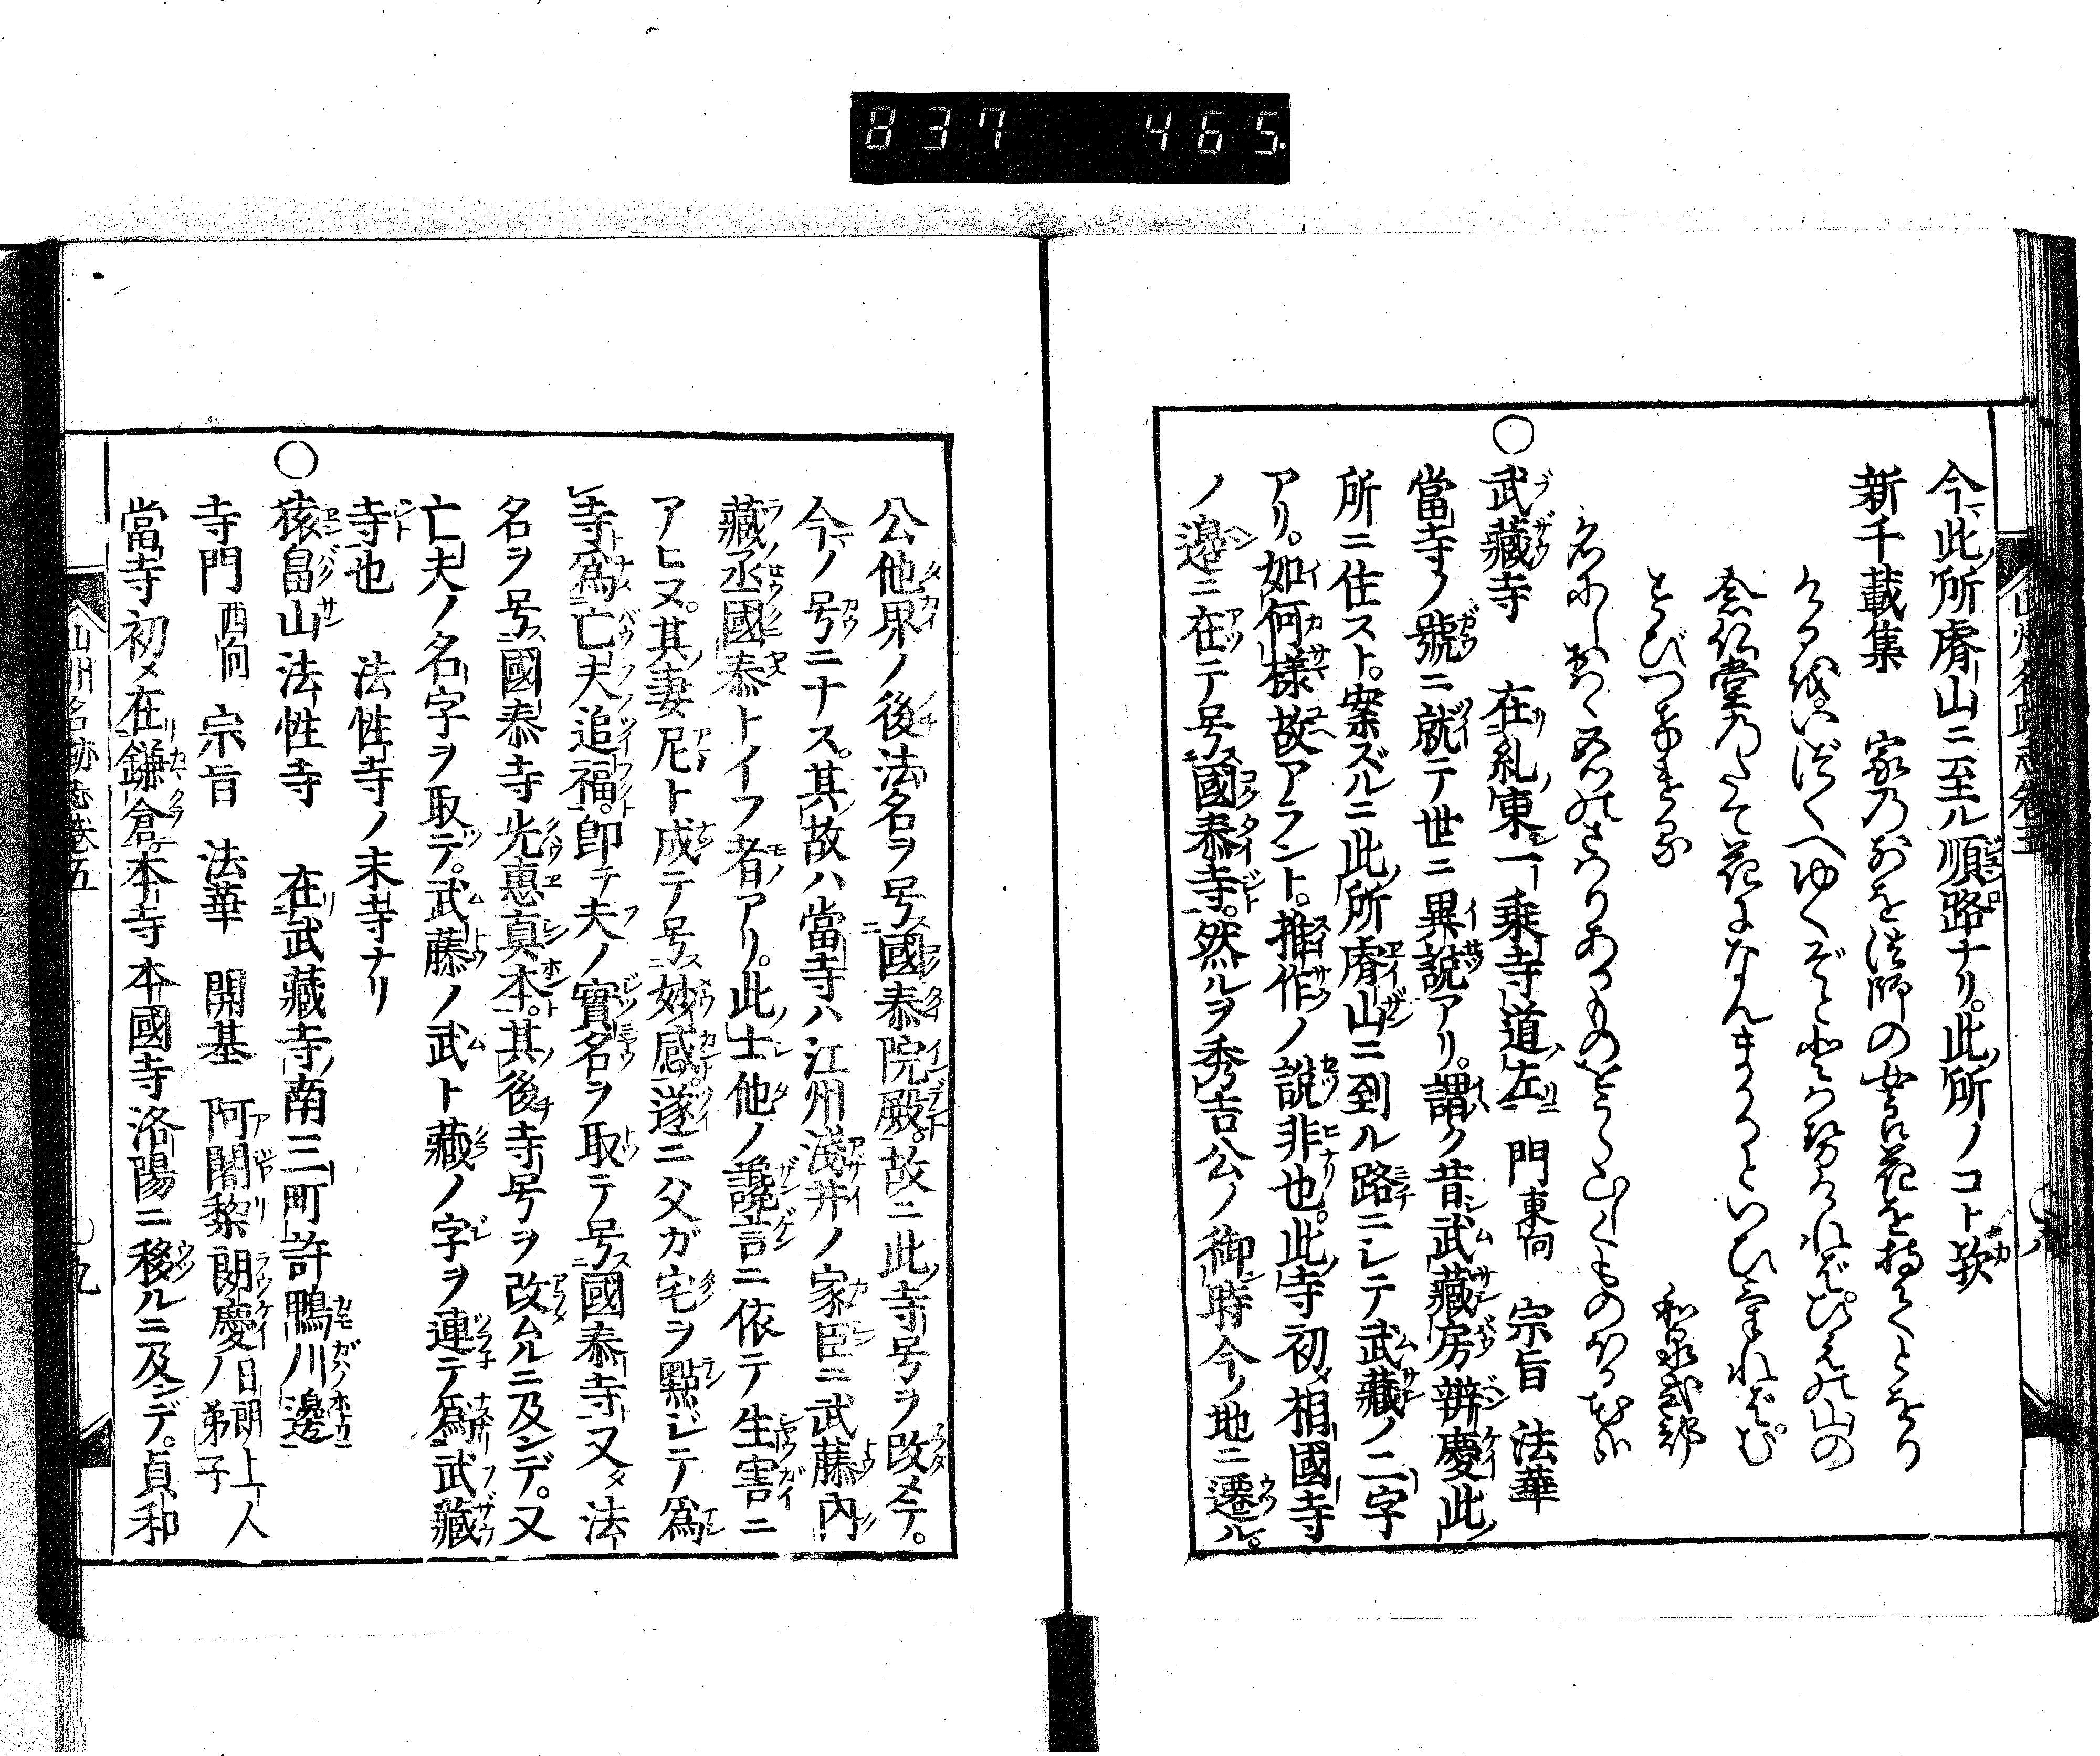 837 465
今此所睿山ニ至ル順路ナリ。此所ノコト歟
新千載集 家乃前を法師の女郎花を持てとをり
けるをいづくへゆくぞととはせければひえの山の
念仏堂乃たて花になんまかるといひければむ
すびつけける 和泉式部
名にしおはゝ五のさはりあるものをうら山しくものほる哉
○武藏寺 在糺東一乗寺道左 門東向 宗旨 法華
當寺ノ號ニ就テ世ニ異説アリ。謂ク昔武藏房辨慶此
所ニ住スト。案ズルニ此所睿山ニ到ル路ニシテ武藏ノ二字
アリ。如何様故アラント。推作ノ説非也。此寺初メ相國寺
ノ邉ニ在テ号國泰寺。然ルヲ秀吉公ノ御時今ノ地ニ遷ル。
公他界ノ後法名ヲ号國泰院殿。故ニ此寺号ヲ改メテ。
今ノ号ニナス。其故ハ當寺ハ江州浅井ノ家臣ニ武藤内
藏丞國泰トイフ者アリ。此士他ノ讒言ニ依テ生害ニ
アヒヌ。其妻尼ト成テ号妙感遂ニ父ガ宅ヲ點ジテ為
寺為亡夫追福。即チ夫ノ實名ヲ取テ号國泰寺又タ法
名ヲ号國泰寺光惠真本。其後寺号ヲ改ムルニ及ンデ。又
亡夫ノ名字ヲ取テ。武藤ノ武ト藏ノ字ヲ連テ為武藏
寺也 法性寺ノ末寺ナリ
○猿畠山法性寺 在武藏寺南三町許鴨川邊
寺門西向 宗旨 法華 開基 阿闍黎朗慶日朗上人ノ弟子
當寺初メ在鎌倉。本寺本國寺洛陽ニ移ルニ及ンデ。貞和
山州名跡志巻五 九